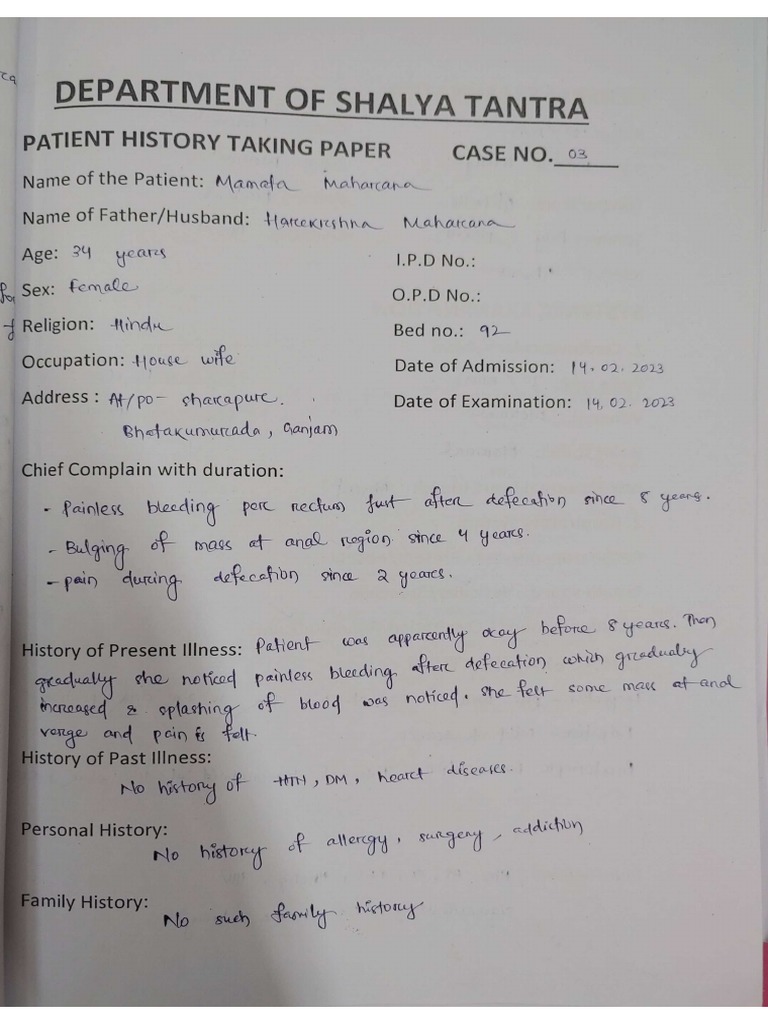 DEPARTMENT OF SHALYA TANTRA
PATIENT HISTORY TAKING PAPER CASE NO. 03
Name of the Patient: Mamata Maharana
Name of Father/Husband: Harekrishna Maharana
Age: 34 years I.P.D No.:
Sex: female O.P.D No.:
Religion: Hindu Bed no.: 92
Occupation: House wife Date of Admission: 14.02.2023
Address : At/po- sharapur. Date of Examination: 14.02.2023
Bhatakumarada, Ganjam
Chief Complain with duration:
- Painless bleeding per rectum just after defecation since 8 years.
- Bulging of mass at anal region since 4 years.
- pain during defecation since 2 years.
History of Present Illness: Patient was apparently okay before 8 years. Then
gradually she noticed painless bleeding after defecation which gradually
increased & splashing of blood was noticed. she felt some mass at anal
verge and pain is felt.
History of Past Illness:
No history of HTN, DM, heart diseases.
Personal History:
No history of allergy, surgery, addiction
Family History:
No such family history